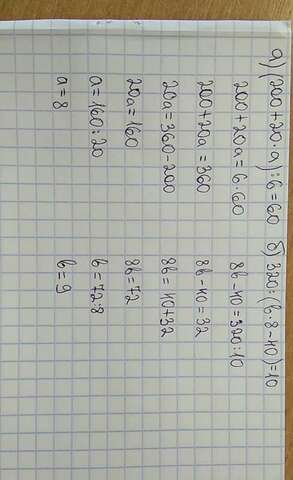 а) (200 + 20·а) : 6 = 60
200 + 20а = 6·60
200 + 20а = 360
20а = 360-200
20а = 160
а = 160:20
а = 8
б) 320 : (в·8-40) = 10
8в - 40 = 320:10
8в - 40 = 32
8в = 40+32
8в = 72
в = 72:8
в = 9